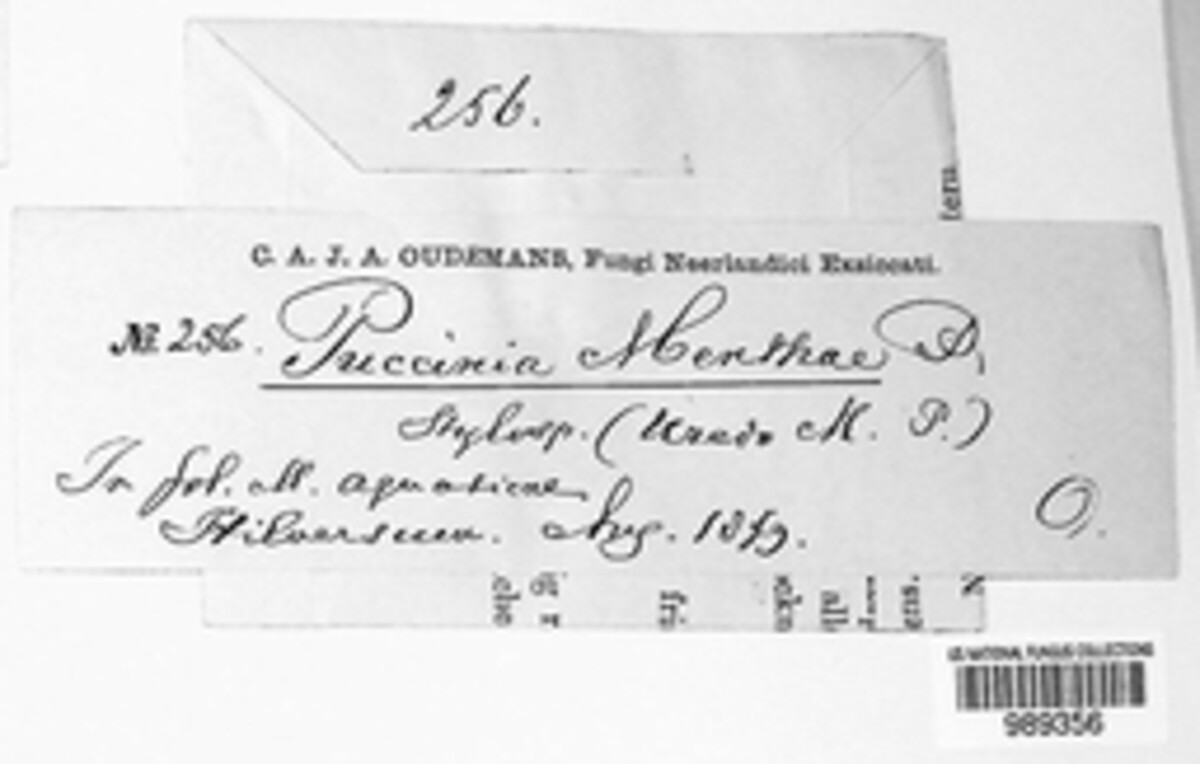 256.
C. A. J. A. OUDEMANS, Fungi Neerlandici Exsiccati.
№ 256. Puccinia Menthae P,
Stylosp. (Uredo M. P.)
In fol. M. aquaticae
Hilversum. Aug. 1879.
O.
US NATIONAL FUNGUS COLLECTIONS
989356